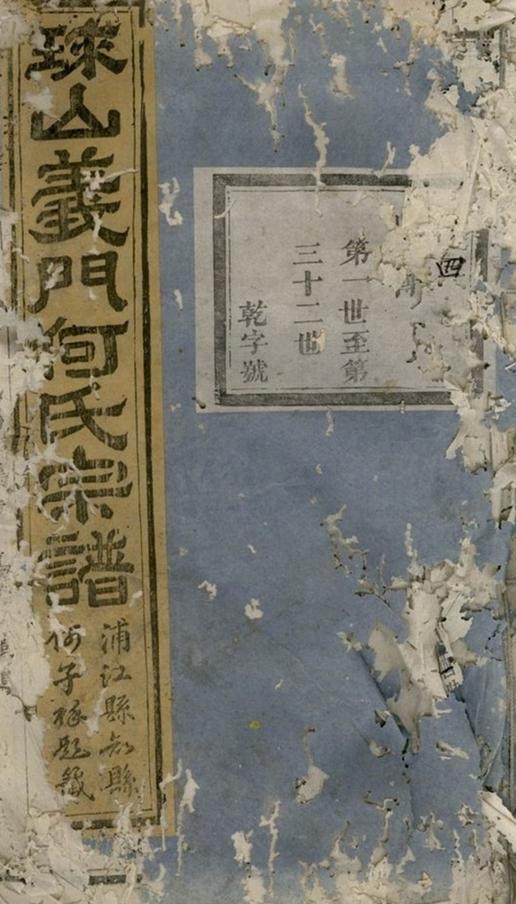 四
第一世至第
三十二世
乾字號
球山義門何氏宗譜
浦江縣知縣
何子祥題籤